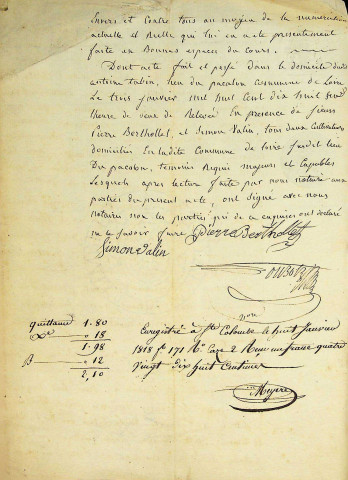 Envers et Contre tous au moyen de la numeration
actuelle et Réelle qui lui en a ete presentement
faite en Bonnes especes du Cours.
Dont acte fait et passé dans le domicile dudit
antoine lieu du pacalon Commune de Loire
Le trois janvier mil huit Cent dix huit
heure de de Relevée En presence de sieurs
Pierre Berthollet, et Simon Valin, tous deux Cultivateurs
domiciliés En ladite Commune de Loire susdit lieu
Du pacalon, temoins Requis majeurs et Capables
Lesquels apres lecture faite par nous notaire aux
parties du present acte, ont signé avec nous
notaire non les parties pour de ce enquises ont declaré
ne le savoir faire Pierre Berthollet
Simon Valin
quittance 1.80
Xe — 18
1.98
B — 12
2,10
Enregistré à Ste Colombe le huit Janvier
1818 fo 171 Ro Case 2 Reçu un franc quatre
vingt dix huit Centimes